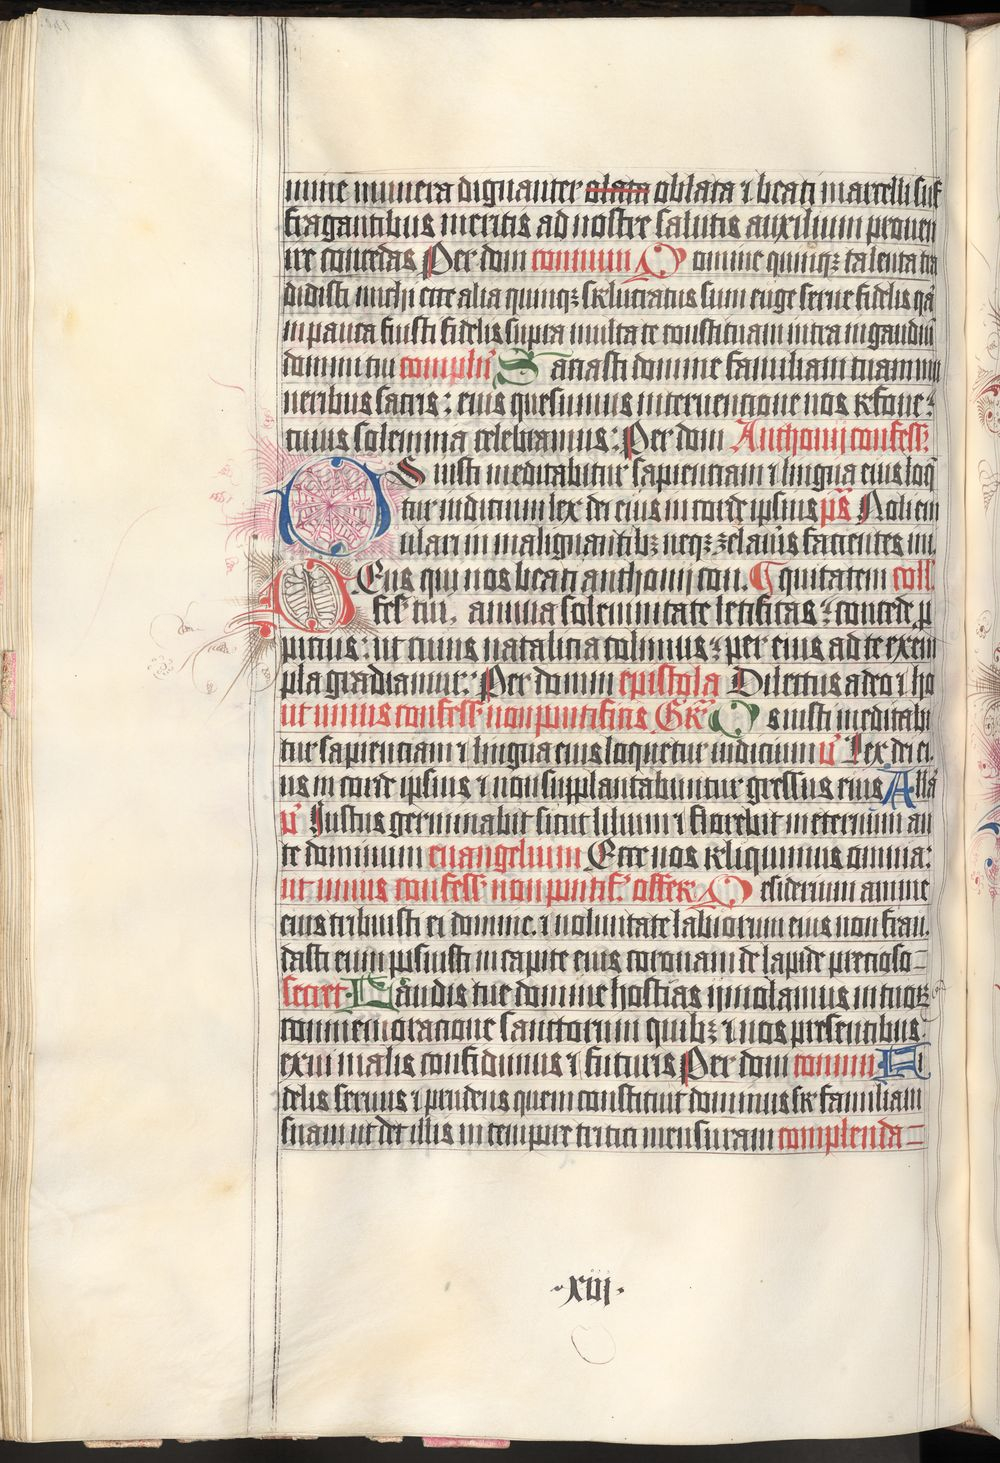 mine munera dignanter olata oblata ⁊ beati marcelli suf
fragantibus meritis ad nostre salutis auxilium proueni
re concedas Per dom commun Domine quinqꝫ talenta tra
didisti michi ecce alia quinqꝫ suplucratus sum euge serue fidelis qa
in pauca fuisti fidelis supra multa te constituam intra in gaudiū
domini tui complen Saciasti domine familiam tuam mu
neribus sacris: eius quesumus interuentione nos refoue:
cuius solemnia celebramus: Per dom Anthonij confess
Os iusti meditabitur sapientiam ⁊ lingua eius loq
tur iudicium lex dei eius in corde ipsius ps Noli em
ulari in malignantibꝫ neqꝫ zelaueris facientes ini.
DEus qui nos beati anthonij con. quitatem coll
fess tui, annua solemnitate letificas: concede, p
picius: ut cuius natalicia colimus: per eius ad te exem
pla gradiamur: Per domin epistola Dilectus a deo ⁊ ho
ut unius confess non pontificis Gr Os iusti meditabi
tur sapientiam ⁊ lingua eius loquetur iudicium v̄ Lex dei ei.
us in corde ipsius ⁊ non supplantabuntur gressus eius Alla
v̄ Justus germinabit sicut lilium ⁊ florebit in eternum an
te dominum euangelium Ecce nos reliquimus omnia:
ut unius confess non pontif offer Desiderium anime
eius tribuisti ei domine. ⁊ uoluntate labiorum eius non frau.
dasti eum posuisti in capite eius coronam de lapide precioso
secret Laudis tue domine hostias ijmolamus in tuorꝫ
commemoratione sanctorum quibꝫ ⁊ nos presentibus.
exui malis confidimus ⁊ futuris Per dom commun Fi
delis seruus ⁊ prudens quem constituit dominus sr familiam
suam ut det illis in tempore tritici mensuram complenda
·xiij·